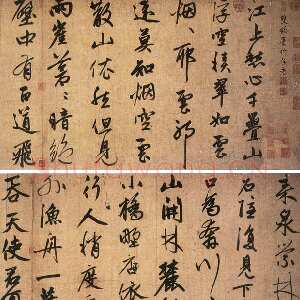 江上愁心千疊山
浮空積翠如雲
烟山耶雲耶
遠莫知烟空雲
散山依然但見
兩崖蒼蒼暗絕
中有百道飛
来泉縈林
石隱復見下
谷口為奔川
山開林麓
小橋野店依
行人稍度喬
外漁舟一葉
吞天使君何